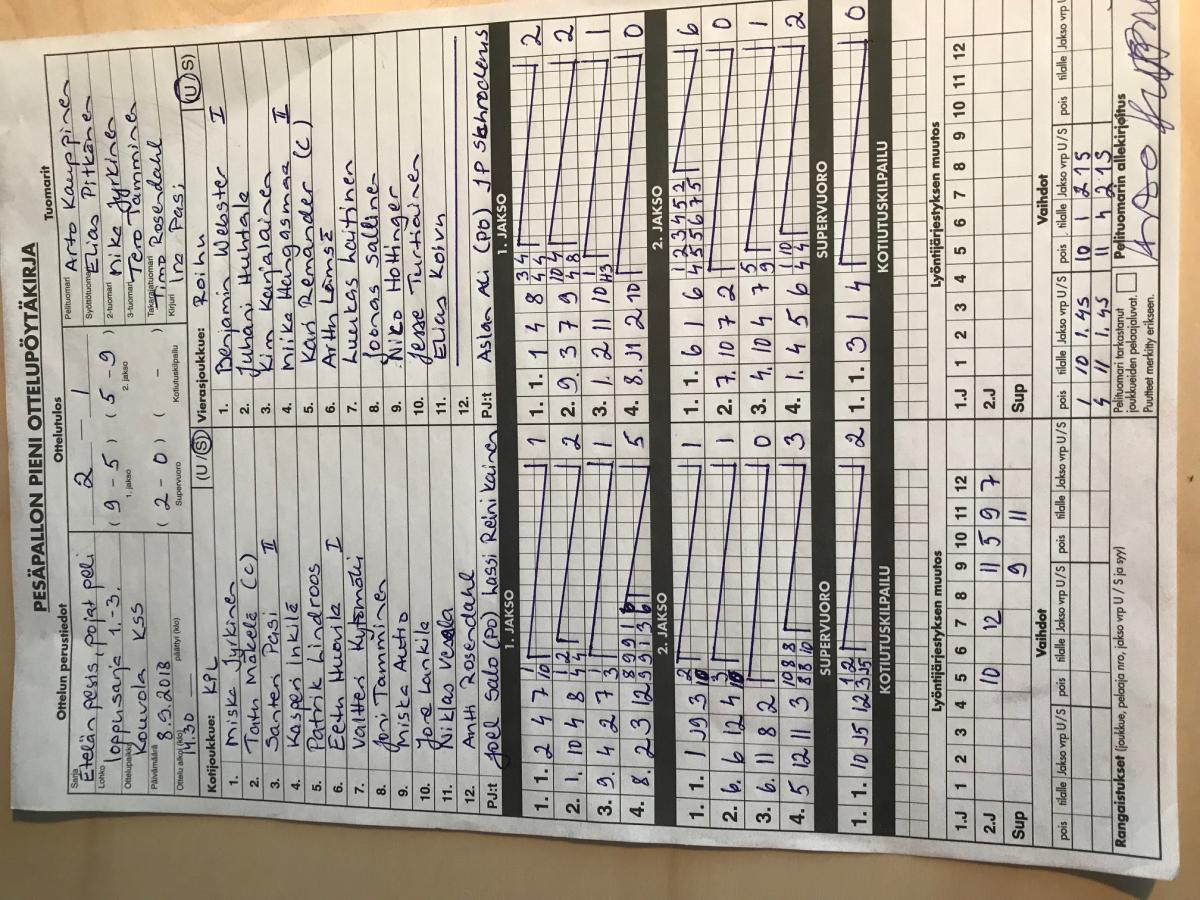 PESÄPALLON PIENI OTTELUPÖYTÄKIRJA
Ottelun perustiedot
Sarja
Etelän pesis, Pojat peli
Lohko
loppusarja 1.-3.
Ottelupaikka
Kouvola KSS
Päivämäärä
8.9.2018
Ottelu alkoi (klo) päättyi (klo)
14.30
Ottelutulos
2 – 1
( 9 – 5 ) ( 5 – 9 )
1. jakso 2. jakso
( 2 – 0 ) ( – )
Supervuoro Kotiutuskilpailu
Tuomarit
Pelituomari
Arto Kauppinen
Syöttötuomari
Elias Pitkänen
2-tuomari
Mika Jyrkinen
3-tuomari
Tero Tamminen
Takarajatuomari
Timo Rosendahl
Kirjuri
Ina Pasi
Kotijoukkue: KPL (U / S)
1. Miska Jyrkinen
2. Taitu Mäkelä (C)
3. Santeri Pasi II
4. Kasperi Inkilä
5. Patrik Lindroos
6. Eetu Huovila I
7. Valtteri Kytömäki
8. Joni Tamminen
9. Miska Autio
10. Jore Lankila
11. Niklas Vesala
12. Antti Rosendahl
PJ:t Joel Salo (PO) Lassi Reinikainen
Vierasjoukkue: Roihu (U / S)
1. Benjamin Webster I
2. Juhani Huhtala
3. Kim Karjalainen
4. Miika Hangasmaa II
5. Kari Renander (C)
6. Arttu Lämsä
7. Luukas Laitinen
8. Joonas Sallinen
9. Niko Hottinger
10. Jesse Turtiainen
11. Elias Koivu
12.
PJ:t Aslan Ali (PO) JP Schroderus
1. JAKSO
1. 1. 2 4 7 1
2. 1. 10 4 8 2
3. 9. 4 2 7 1
4. 8. 2 3 12 5
2. JAKSO
1. 1. 1 J9 3 1
2. 6. 6 12 4 1
3. 6. 11 8 2 0
4. 5 12 11 3 3
SUPERVUORO
1. 1. 10 J5 12 2
KOTIUTUSKILPAILU
1. JAKSO
1. 1. 1 4 8 2
2. 9. 3 7 9 2
3. 1. 2 11 10 1
4. 8. J1 2 10 0
2. JAKSO
1. 1. 6 1 6 6
2. 7. 10 7 2 0
3. 4. 10 4 7 1
4. 1. 4 5 6 2
SUPERVUORO
1. 1. 3 1 4 0
KOTIUTUSKILPAILU
Lyöntijärjestyksen muutos
1.J 1 2 3 4 5 6 7 8 9 10 11 12
2.J 10 12 11 5 9 7
Sup 9 11
Lyöntijärjestyksen muutos
1.J 1 2 3 4 5 6 7 8 9 10 11 12
2.J
Sup
Vaihdot
pois tilalle Jakso vrp U / S pois tilalle Jakso vrp U / S pois tilalle Jakso vrp U / S
Vaihdot
pois tilalle Jakso vrp U / S pois tilalle Jakso vrp U / S pois tilalle Jakso vrp U
1 10 1. 4S 10 1 2 1S
4 11 1. 4S 11 4 2 1S
Rangaistukset (joukkue, pelaaja nro, jakso vrp U / S ja syy)
Pelituomari tarkastanut
joukkueiden pelaajaluvat.
Puutteet merkitty erikseen.
Pelituomarin allekirjoitus